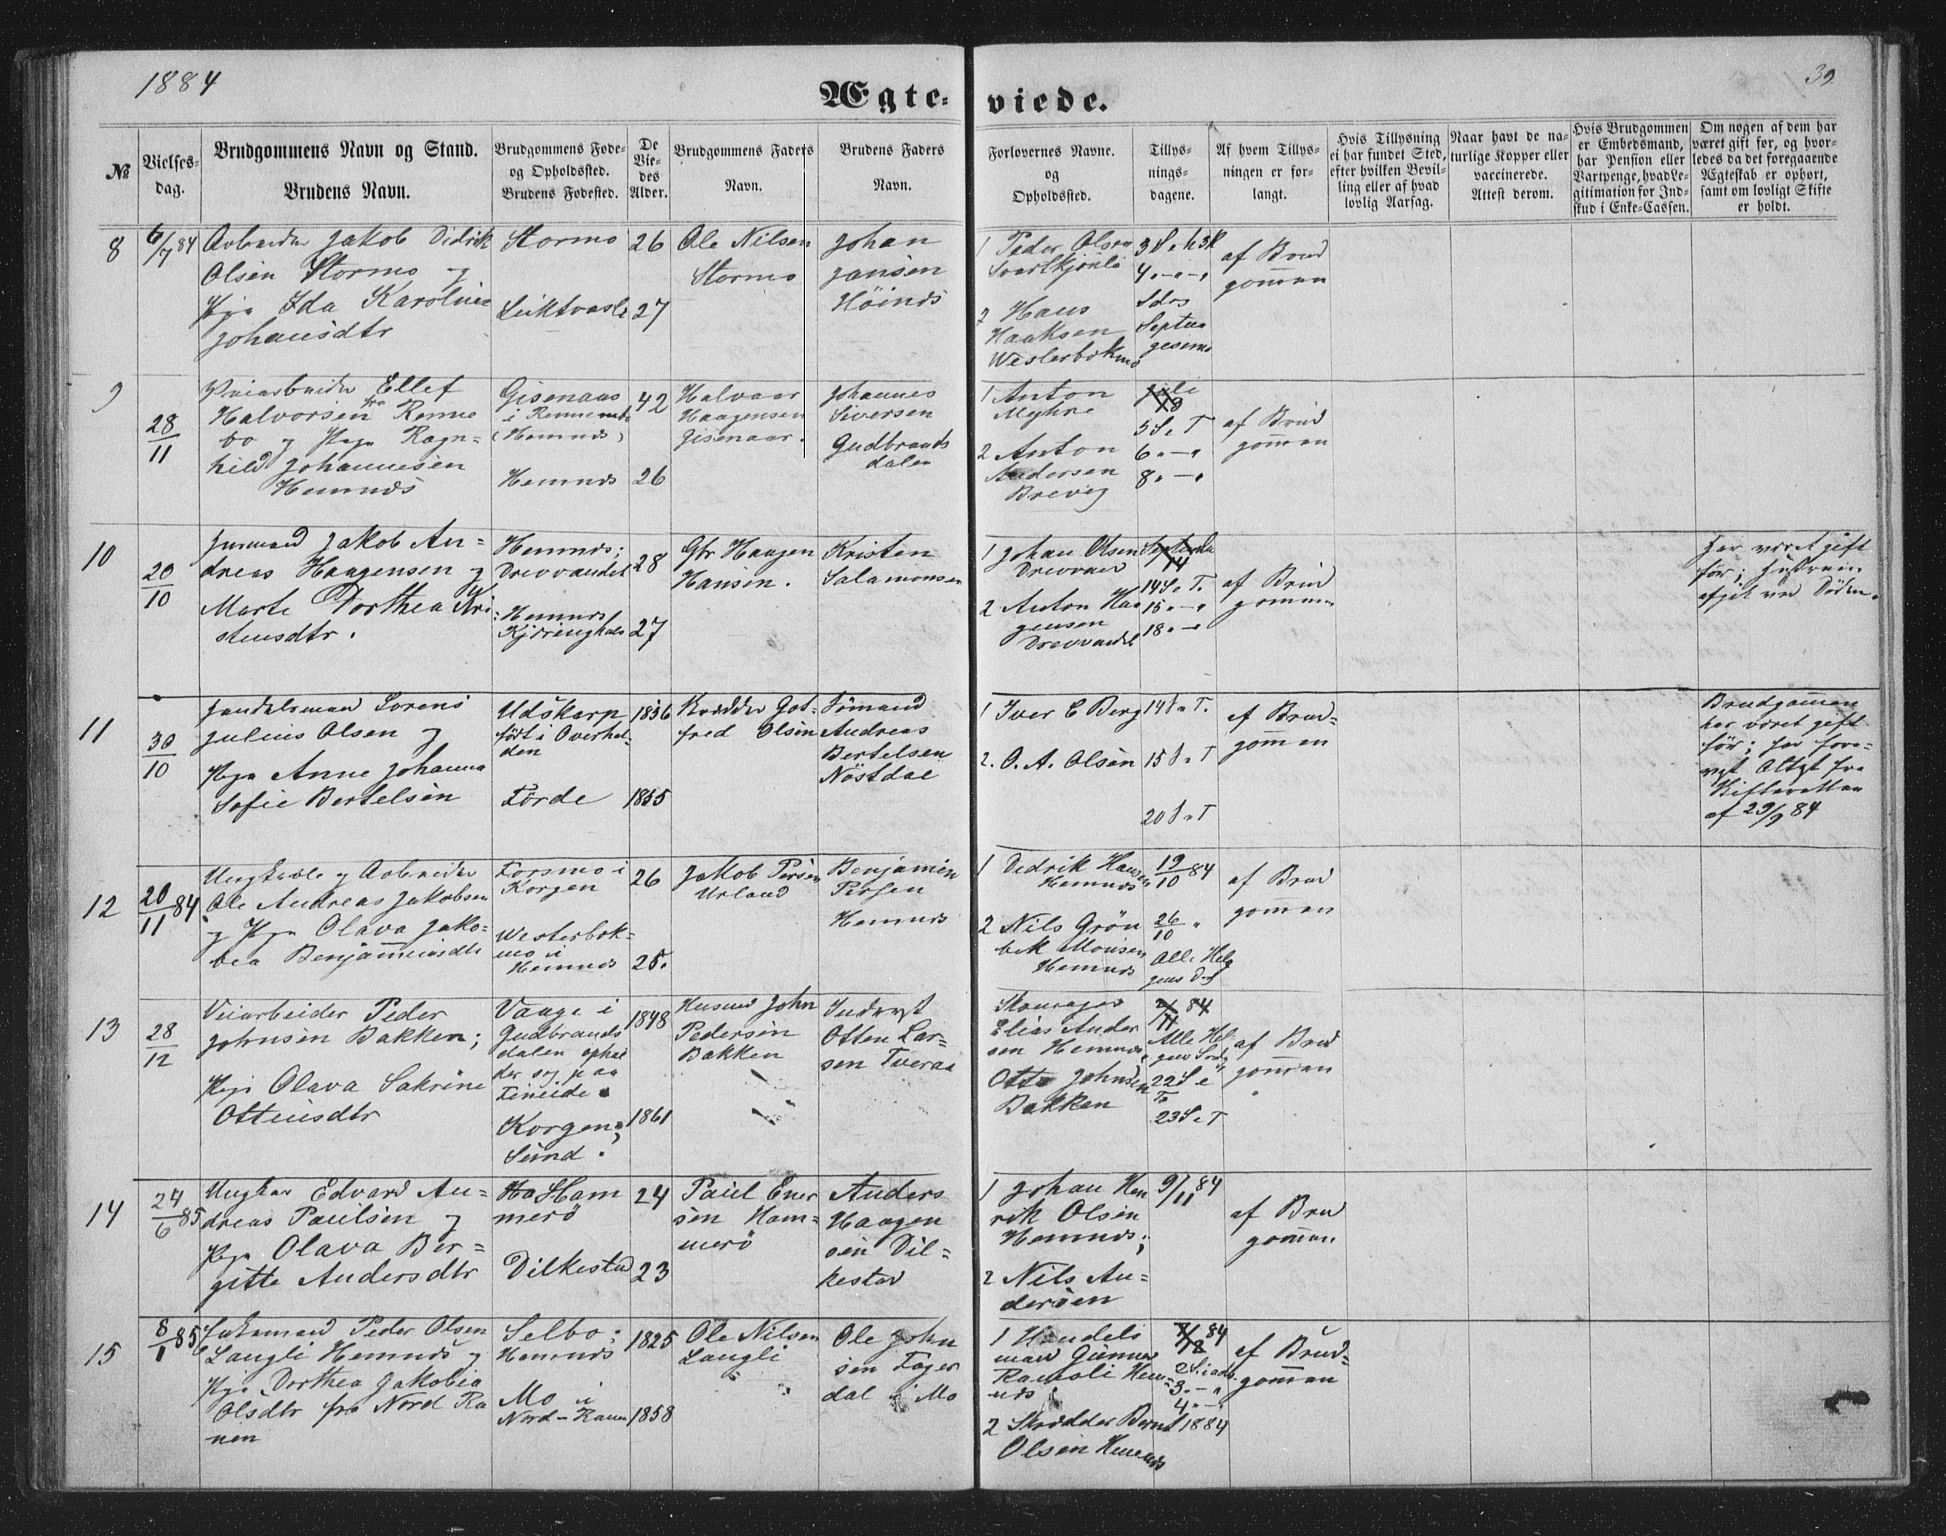 1884
39.
Ægte-
viede.
№
Vielses-
dag.
Brudgommens Navn og Stand.
Brudens Navn.
Brudgommens Føde-
og Opholdssted.
Brudens Fødested.
De
Vie-
des
Alder.
Brudgommens Faders
Navn.
Brudens Faders
Navn.
Forlovernes Navne.
og
Opholdssted.
Tillys-
nings-
dagene.
Af hvem Tillys-
ningen er for-
langt.
Hvis Tillysning
ei har fundet Sted,
efter hvilken Bevil-
ling eller af hvad
lovlig Aarsag.
Naar havt de na-
turlige Kopper eller
vaccinerede.
Attest derom.
Hvis Brudgommen
er Embedsmand,
har Pension eller
Vartpenge, hvad Le-
gitimation for Ind-
skud i Enke-Cassen.
Om nogen af dem har
været gift før, og hvor-
ledes da det foregaaende
Ægteskab er ophørt,
samt om lovligt Skifte
er holdt.
8
6/7 84
Arbeider Jakob Didrik
Olsen Stormo og
Pige Ida Karoline
Johansdtr
Stormo
26
27
Ole Nilsen
Stormo
Johan
Jansen
Høines
1 Peder Olsen
2 Hans
Haaksen
Westerbokmo
4
Septua
gesema
af Brud
gommen
9
28/11
Veiarbeider Ellef
Halvorsen fra Renne
bo og Pige Ragn-
hild Johannesen
Hemnes
Gisenaas
i Rennebo
(Hemnes)
Hemnes
42
26
Halvaar
Haagensen
Gisenaar.
Johannes
Siversen
Gudbrands
dalen
1 Anton
Myhre
2 Anton
Andersen
Brevig
5 S. e T
6 " — "
8 " — "
af Brud
gommen
10
20/10
Jakob An-
dreas Haagensen og
Marte Dorthea Kri
stensdtr.
Hemnes;
Drevvandet
Hemnes
28
27
Gbr Haagen
Hansen.
Kristen
Salamonsen
1 Johan Olsen
2 Anton Haa
gensen
Drevvandet
14 S. e. T.
15 " — "
18 " — "
af Brud
gommen
har været gift
før; Hustruen
afgik ved Døden.
11
30/10
Handelsmand Lorens
Julius Olsen og
Pige Anne Johanna
Sofie Bertelsen
Udskarp
født i Overhal-
den
Førde
1856
1855
Got-
fred Olsen
Andreas
Bertelsen
Nøstdal
1 Iver C Berg
2. O. A. Olsen
14 S. e T.
15 S. e T
20 S. e T
af Brud-
gommen
Brudgommen
har været gift
før; har fore-
vist Attest fra
Skifteretten
af 29/9 84
12
20/11 84
Ungkarl og Arbeider
Ole Andreas Jakobsen
og Pige Olava Jako-
bea Benjaminsdtr
Forsmo i
Korgen
Westerbok-
mo i
Hemnes
26
25.
Jakob Persen
Urland
Benjamin
Persen
Hemnes
1 Didrik Hansen
Hemnes
2 Nils Grøn
bek Monsen
Hemnes
19/10 84
26/10 "
Alle Hel
gens Dag
af Brud
gommen
13
28/12
Veiarbeider Peder
Johnsen Bakken;
Pige Olava Sakrine
Ottensdtr
Vaage i
Gudbrands
dalen ophol
der sig paa
Fineide.
Korgen;
Sund.
1848
1861
Husmd John
Pedersen
Bakken
Inderst
Otten Lar-
sen Tveraa
Skomager
Elias Ander
sen Hemnes,
Otto Johnsen
Bakken
84
Alle Hel
gens
22 S. e
T.
23 S. e T
af Brud
gommen
14
24/6 85
Ungkar Edvard An-
dreas Paulsen og
Pige Olava Ber-
gitte Andersdtr
Ham
merø
Dilkestad
24
23
Paul Ener
sen Ham-
merø
Anders
Haagen
sen Dil-
kestad
1 Johan Hen
rik Olsen
Hemnes;
2 Nils An-
dersen
9/11 84
af Brud
gommen
15
8/1 85
Enkemand Peder Olsen
Langli Hemnes og
Pige Dorthea Jakobia
Olsdtr fra Nord Ra
nen
Selbo;
Hemnes
Mo i
Nord-Ranen
1825
1858
Ole Nilsen
Langli
Ole John
sen Fager
dal i Mo
1 Handels
man Gunner
Ramoli Hem-
nes
2 Skrædder Bernt
Olsen Hemnes
84
2 S. i adv.
3 " — "
4 " — "
1884
af Brud-
gommen